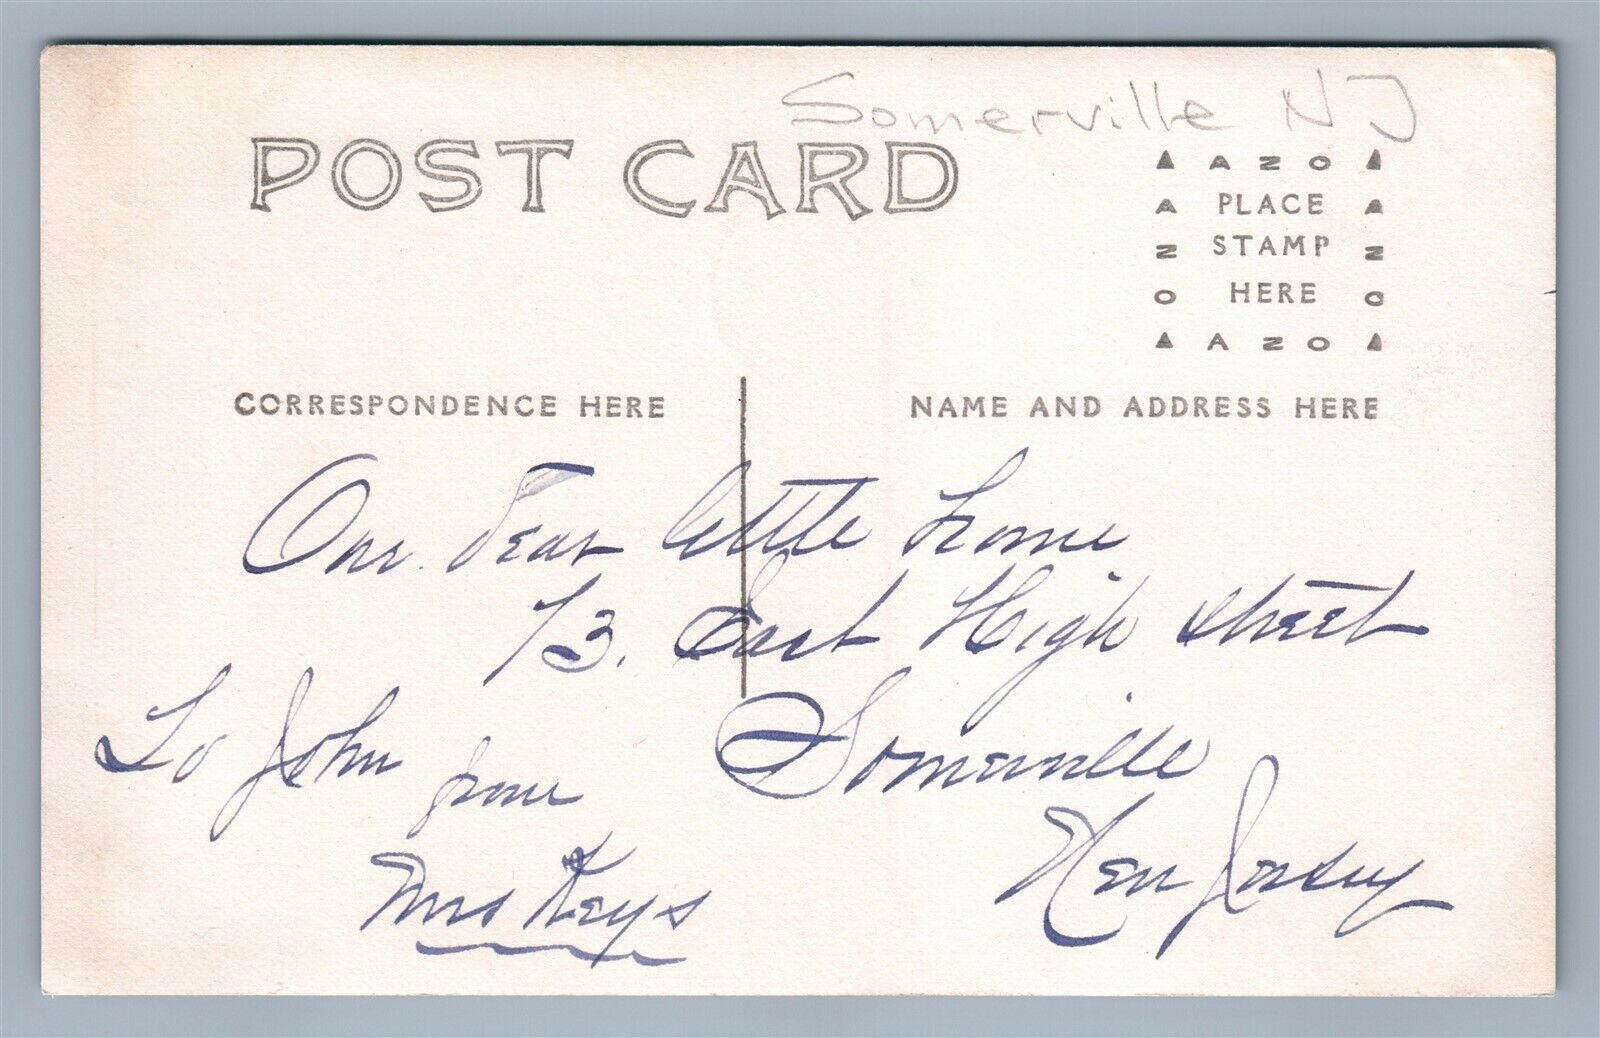 Somerville NJ
POST CARD
▲ AZO ▲
A PLACE A
Z STAMP Z
O HERE O
▲ AZO ▲
CORRESPONDENCE HERE
NAME AND ADDRESS HERE
Our dear little home
73. East High Street
Somerville
New Jersey
To John from
Mrs Keys